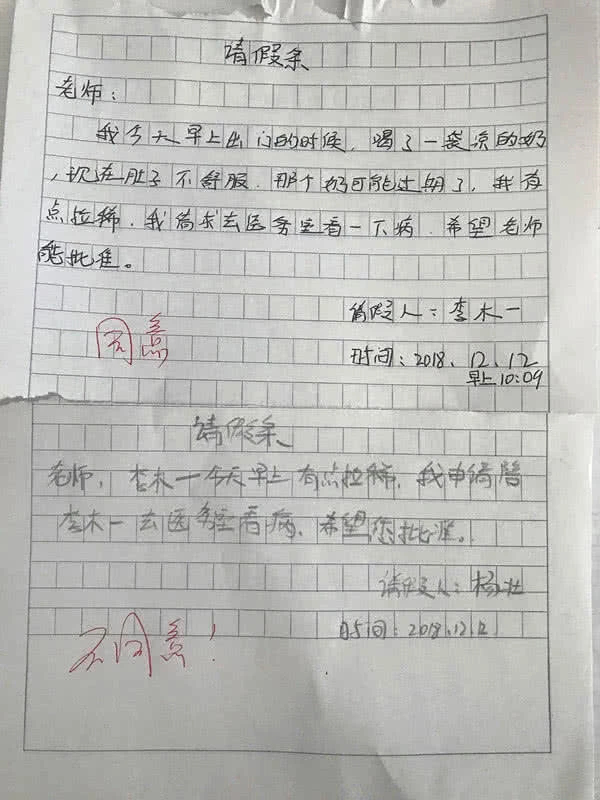 请假条
老师：
我今天早上出门的时候，喝了一袋凉的奶
，现在肚子不舒服．那个奶可能过期了，我有
点拉稀．我请求去医务室看一下病．希望老师
能批准。
请假人：李木一
同意
时间：2018．12．12
早上10:09
请假条
老师，李木一今天早上有点拉稀．我申请陪
李木一去医务室看病．希望您批准。
请假人：杨壮
时间：2018.12.12
不同意！